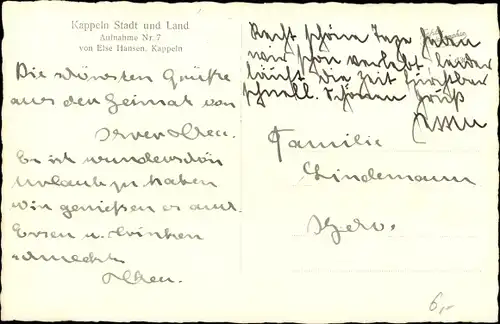 Kappeln Stadt und Land
Aufnahme Nr. 7
von Else Hansen, Kappeln
Die schönsten Grüße
aus der Heimat von
Es ist wunderschön
Urlaub zu haben
wir genießen es auch
Essen u. trinken
schmeckt
Recht schöne Tage haben
wir schon verlebt. Leider
läuft die Zeit furchtbar
schnell. Schönen Gruß
Familie
Lindemann
6,-